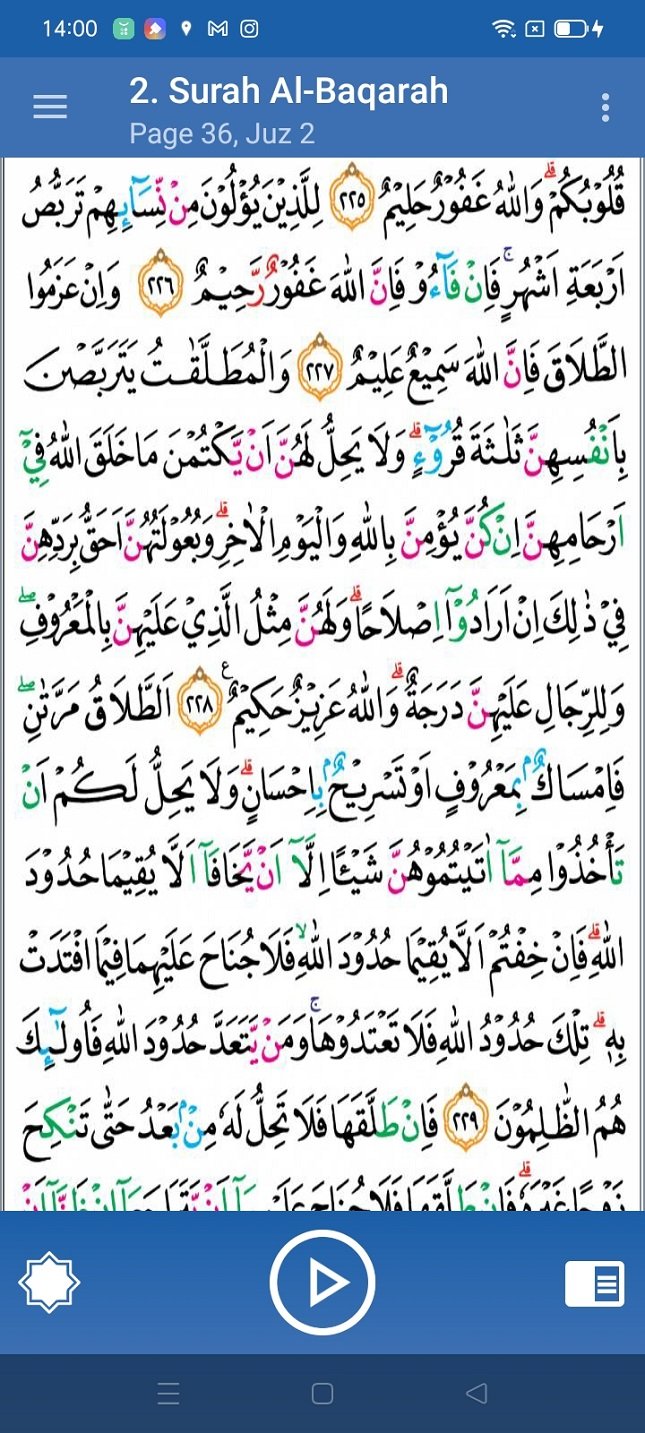 14:00
2. Surah Al-Baqarah
Page 36, Juz 2
قُلُوْبُكُمْ ۗ وَاللّٰهُ غَفُوْرٌ حَلِيْمٌ ٢٢٥ لِلَّذِيْنَ يُؤْلُوْنَ مِنْ نِّسَاۤىِٕهِمْ تَرَبُّصُ
اَرْبَعَةِ اَشْهُرٍۚ فَاِنْ فَاۤءُوْ فَاِنَّ اللّٰهَ غَفُوْرٌ رَّحِيْمٌ ٢٢٦ وَاِنْ عَزَمُوا
الطَّلَاقَ فَاِنَّ اللّٰهَ سَمِيْعٌ عَلِيْمٌ ٢٢٧ وَالْمُطَلَّقٰتُ يَتَرَبَّصْنَ
بِاَنْفُسِهِنَّ ثَلٰثَةَ قُرُوْۤءٍۗ وَلَا يَحِلُّ لَهُنَّ اَنْ يَّكْتُمْنَ مَا خَلَقَ اللّٰهُ فِيْٓ
اَرْحَامِهِنَّ اِنْ كُنَّ يُؤْمِنَّ بِاللّٰهِ وَالْيَوْمِ الْاٰخِرِۗ وَبُعُوْلَتُهُنَّ اَحَقُّ بِرَدِّهِنَّ
فِيْ ذٰلِكَ اِنْ اَرَادُوْٓا اِصْلَاحًاۗ وَلَهُنَّ مِثْلُ الَّذِيْ عَلَيْهِنَّ بِالْمَعْرُوْفِۖ
وَلِلرِّجَالِ عَلَيْهِنَّ دَرَجَةٌ ۗ وَاللّٰهُ عَزِيْزٌ حَكِيْمٌ ࣖ ٢٢٨ اَلطَّلَاقُ مَرَّتٰنِۖ
فَاِمْسَاكٌۢ بِمَعْرُوْفٍ اَوْ تَسْرِيْحٌۢ بِاِحْسَانٍۗ وَلَا يَحِلُّ لَكُمْ اَنْ
تَأْخُذُوْا مِمَّآ اٰتَيْتُمُوْهُنَّ شَيْـًٔا اِلَّآ اَنْ يَّخَافَآ اَلَّا يُقِيْمَا حُدُوْدَ
اللّٰهِۗ فَاِنْ خِفْتُمْ اَلَّا يُقِيْمَا حُدُوْدَ اللّٰهِۙ فَلَا جُنَاحَ عَلَيْهِمَا فِيْمَا افْتَدَتْ
بِهٖۗ تِلْكَ حُدُوْدُ اللّٰهِ فَلَا تَعْتَدُوْهَاۚ وَمَنْ يَّتَعَدَّ حُدُوْدَ اللّٰهِ فَاُولٰۤىِٕكَ
هُمُ الظّٰلِمُوْنَ ٢٢٩ فَاِنْ طَلَّقَهَا فَلَا تَحِلُّ لَهٗ مِنْۢ بَعْدُ حَتّٰى تَنْكِحَ